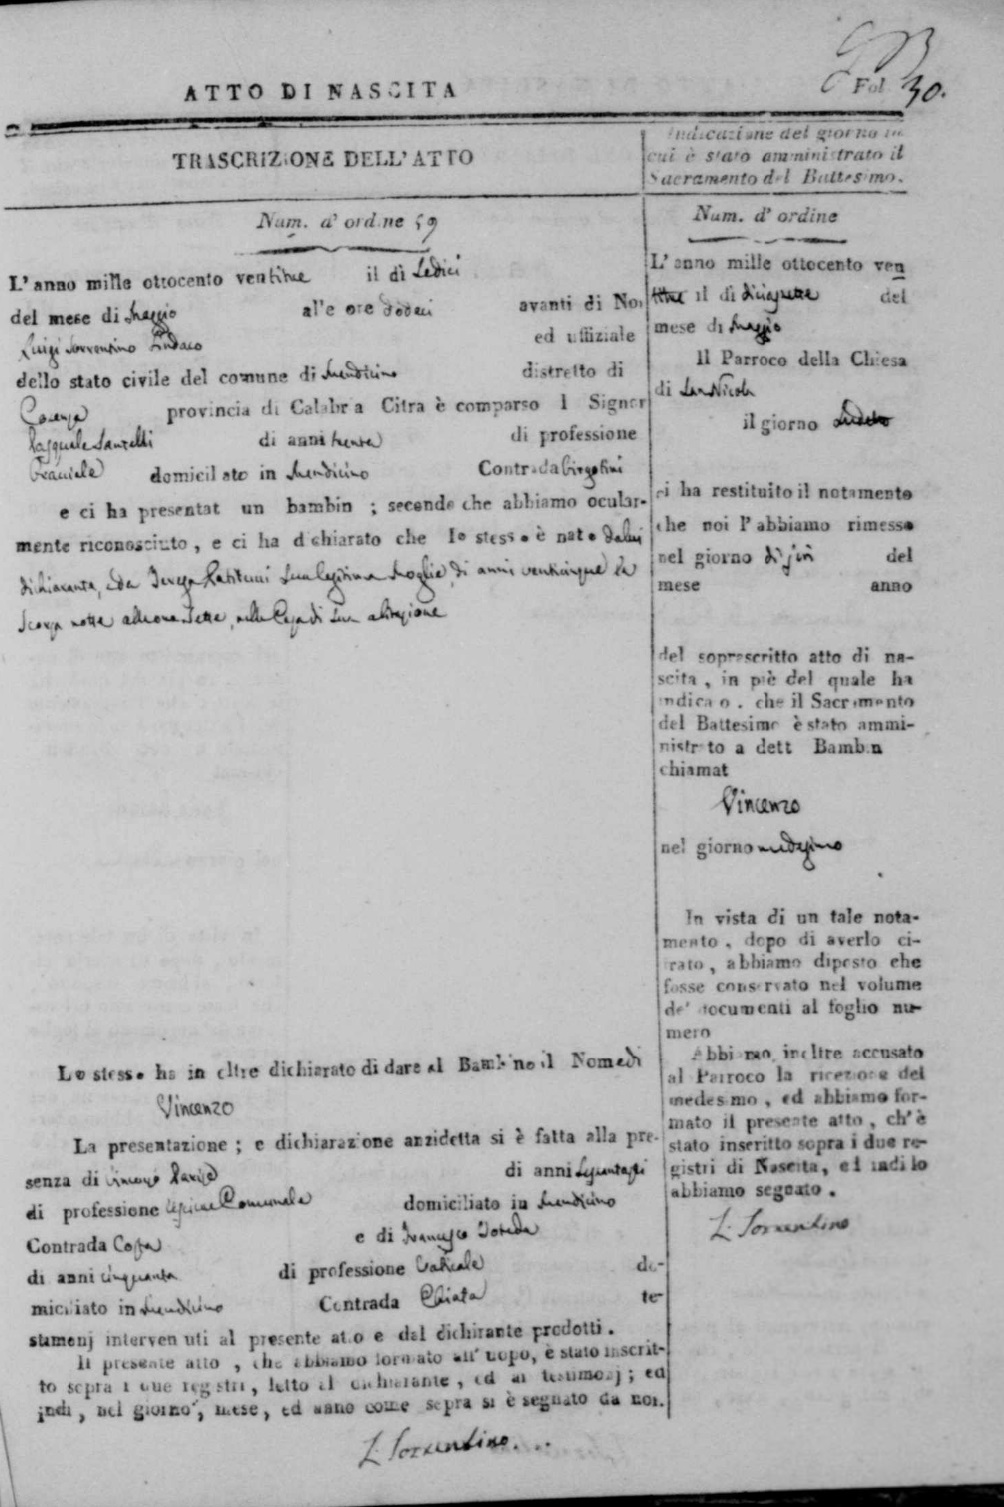 ATTO DI NASCITA
Fol 30.
TRASCRIZIONE DELL'ATTO
Num. d' ordine 59
L'anno mille ottocento ventitrue il dì Sedici
del mese di Maggio al'e ore dodeci avanti di Noi
Luigi Sorrentino Sindaco ed uffiziale
dello stato civile del comune di Mendicino distretto di
Cosenza provincia di Calabria Citra è comparso l Signor
Pasquale di anni trenta di professione
Bracciale domicil ato in Mendicino Contrada
e ci ha presentat un bambin ; secondo che abbiamo ocular-
mente riconosciuto, e ci ha dichiarato che lo stesso è nato da lui
dichiarante, e da Teresa sua legitima moglie, di anni venticinque la
scorsa notte alle ore sette, nella Casa di sua abitazione
Lo stesso ha in oltre dichiarato di dare al Bambino il Nome di
Vincenzo
La presentazione ; e dichiarazione anzidetta si è fatta alla pre-
senza di di anni
di professione Comunale domiciliato in Mendicino
Contrada Costa e di Francesco
di anni cinquanta di professione Bracciale do-
miciliato in Mendicino Contrada Chiata te-
stimonj interven uti al presente atto e dal dichirante prodotti.
Il presente atto , che abbiamo formato all' uopo, è stato inscrit-
to sopra i due registri, letto al dichiarante , ed ai testimonj ; ed
indi , nel giorno, mese, ed anno come sopra si è segnato da noi.
L. Sorrentino
Indicazione del giorno in
cui è stato amministrato il
Sacramento del Battesimo.
Num. d' ordine
L'anno mille ottocento ven
titrue il dì diciasette del
mese di Maggio
Il Parroco della Chiesa
di San Nicola
il giorno
ci ha restituito il notamento
che noi l'abbiamo rimesso
nel giorno del
mese anno
del soprascritto atto di na-
scita , in piè del quale ha
indica o . che il Sacramento
del Battesimo è stato ammi-
nistrato a dett Bambin
chiamat
Vincenzo
nel giorno medesimo
In vista di un tale nota-
mento , dopo di averlo ci-
frato , abbiamo disposto che
fosse conservato nel volume
de' documenti al foglio nu-
mero
Abbiamo inoltre accusato
al Parroco la ricezione del
medesimo , ed abbiamo for-
mato il presente atto , ch'è
stato inscritto sopra i due re-
gistri di Nascita, ed indi lo
abbiamo segnato .
L. Sorrentino